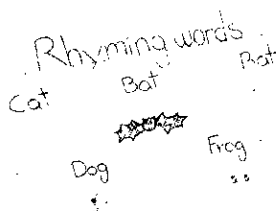 Rhyming words
Cat Bat Rat
Dog Frog